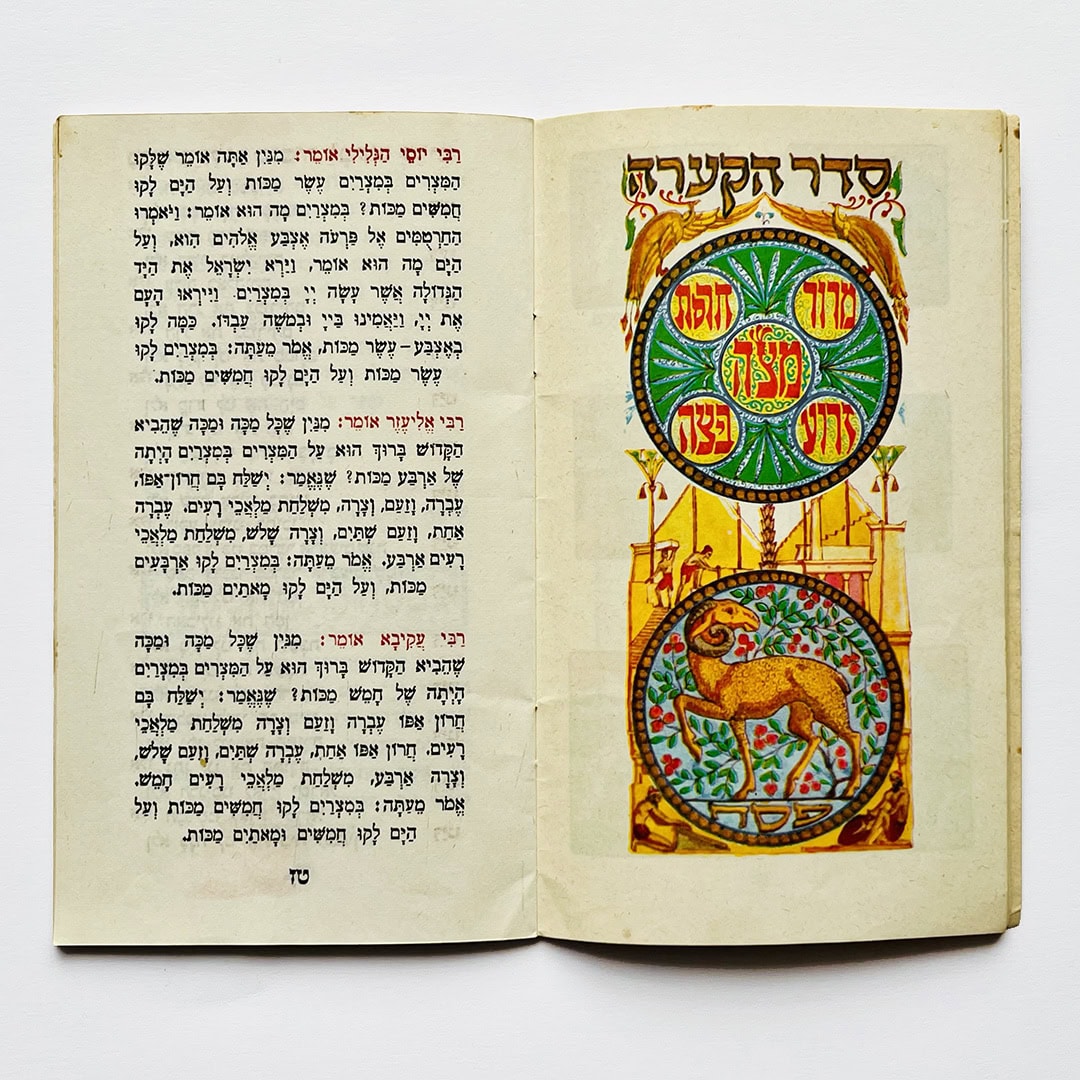 סדר הקערה
מרור חרסת
מצה
זרוע ביצה
פסח
רַבִּי יוֹסֵי הַגְּלִילִי אוֹמֵר: מִנַּיִן אַתָּה אוֹמֵר שֶׁלָּקוּ
הַמִּצְרִים בְּמִצְרַיִם עֶשֶׂר מַכּוֹת וְעַל הַיָּם לָקוּ
חֲמִשִּׁים מַכּוֹת? בְּמִצְרַיִם מָה הוּא אוֹמֵר: וַיֹּאמְרוּ
הַחַרְטֻמִּים אֶל פַּרְעֹה אֶצְבַּע אֱלֹהִים הִוא, וְעַל
הַיָּם מָה הוּא אוֹמֵר, וַיַּרְא יִשְׂרָאֵל אֶת הַיָּד
הַגְּדוֹלָה אֲשֶׁר עָשָׂה יְיָ בְּמִצְרַיִם וַיִּירְאוּ הָעָם
אֶת יְיָ, וַיַּאֲמִינוּ בַּייָ וּבְמֹשֶׁה עַבְדּוֹ. כַּמָּה לָקוּ
בְאֶצְבַּע – עֶשֶׂר מַכּוֹת, אֱמֹר מֵעַתָּה: בְּמִצְרַיִם לָקוּ
עֶשֶׂר מַכּוֹת וְעַל הַיָּם לָקוּ חֲמִשִּׁים מַכּוֹת.
רַבִּי אֱלִיעֶזֶר אוֹמֵר: מִנַּיִן שֶׁכָּל מַכָּה וּמַכָּה שֶׁהֵבִיא
הַקָּדוֹשׁ בָּרוּךְ הוּא עַל הַמִּצְרִים בְּמִצְרַיִם הָיְתָה
שֶׁל אַרְבַּע מַכּוֹת? שֶׁנֶּאֱמַר: יְשַׁלַּח בָּם חֲרוֹן-אַפּוֹ,
עֶבְרָה, וָזַעַם, וְצָרָה, מִשְׁלַחַת מַלְאֲכֵי רָעִים. עֶבְרָה
אַחַת, וָזַעַם שְׁתַּיִם, וְצָרָה שָׁלֹשׁ, מִשְׁלַחַת מַלְאֲכֵי
רָעִים אַרְבַּע. אֱמֹר מֵעַתָּה: בְּמִצְרַיִם לָקוּ אַרְבָּעִים
מַכּוֹת, וְעַל הַיָּם לָקוּ מָאתַיִם מַכּוֹת.
רַבִּי עֲקִיבָא אוֹמֵר: מִנַּיִן שֶׁכָּל מַכָּה וּמַכָּה
שֶׁהֵבִיא הַקָּדוֹשׁ בָּרוּךְ הוּא עַל הַמִּצְרִים בְּמִצְרַיִם
הָיְתָה שֶׁל חָמֵשׁ מַכּוֹת? שֶׁנֶּאֱמַר: יְשַׁלַּח בָּם
חֲרוֹן אַפּוֹ עֶבְרָה וָזַעַם וְצָרָה מִשְׁלַחַת מַלְאֲכֵי
רָעִים. חֲרוֹן אַפּוֹ אַחַת, עֶבְרָה שְׁתַּיִם, וָזַעַם שָׁלֹשׁ,
וְצָרָה אַרְבַּע, מִשְׁלַחַת מַלְאֲכֵי רָעִים חָמֵשׁ.
אֱמֹר מֵעַתָּה: בְּמִצְרַיִם לָקוּ חֲמִשִּׁים מַכּוֹת וְעַל
הַיָּם לָקוּ חֲמִשִּׁים וּמָאתַיִם מַכּוֹת.
טז